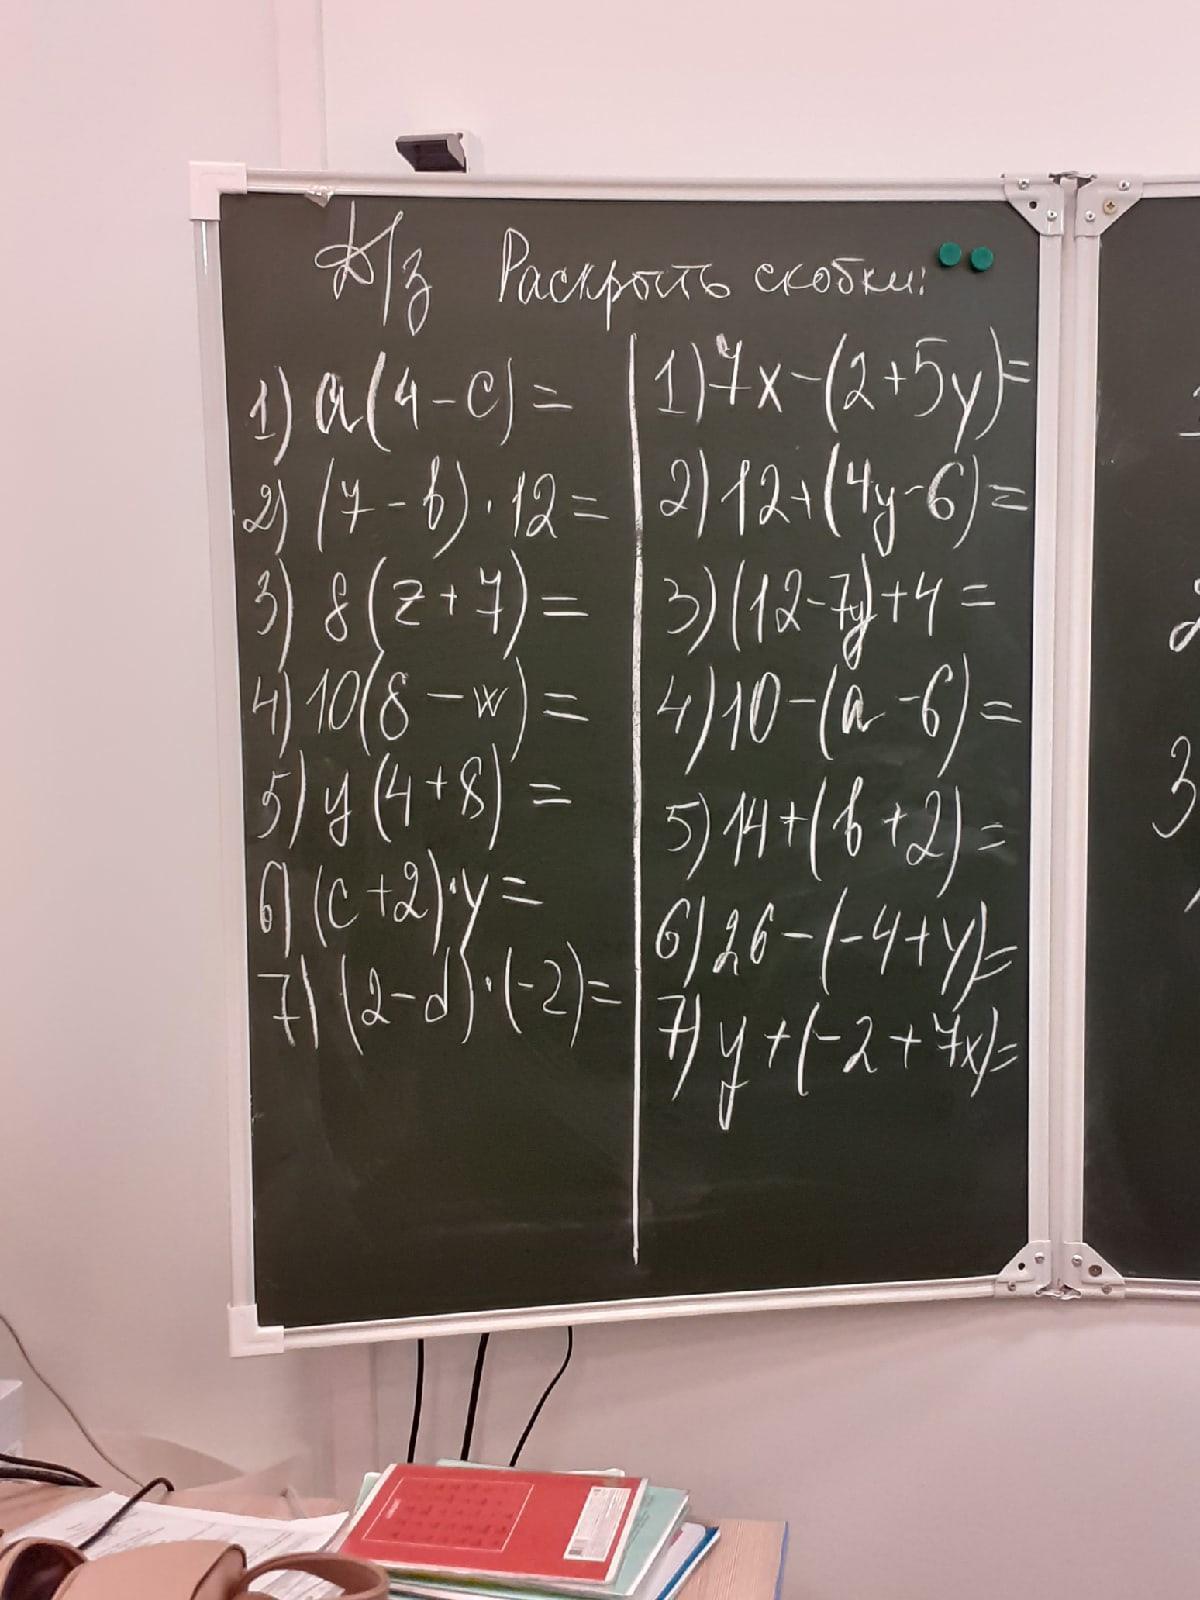 Д/з Раскрыть скобки:
1) a(4 - c) =
2) (7 - b) · 12 =
3) 8(z + 7) =
4) 10(8 - w) =
5) y(4 + 8) =
6) (c + 2) · y =
7) (2 - d) · (-2) =
1) 7x - (2 + 5y) =
2) 12 + (4y - 6) =
3) (12 - 7y) + 4 =
4) 10 - (a - 6) =
5) 14 + (b + 2) =
6) 26 - (-4 + y) =
7) y + (-2 + 7x) =